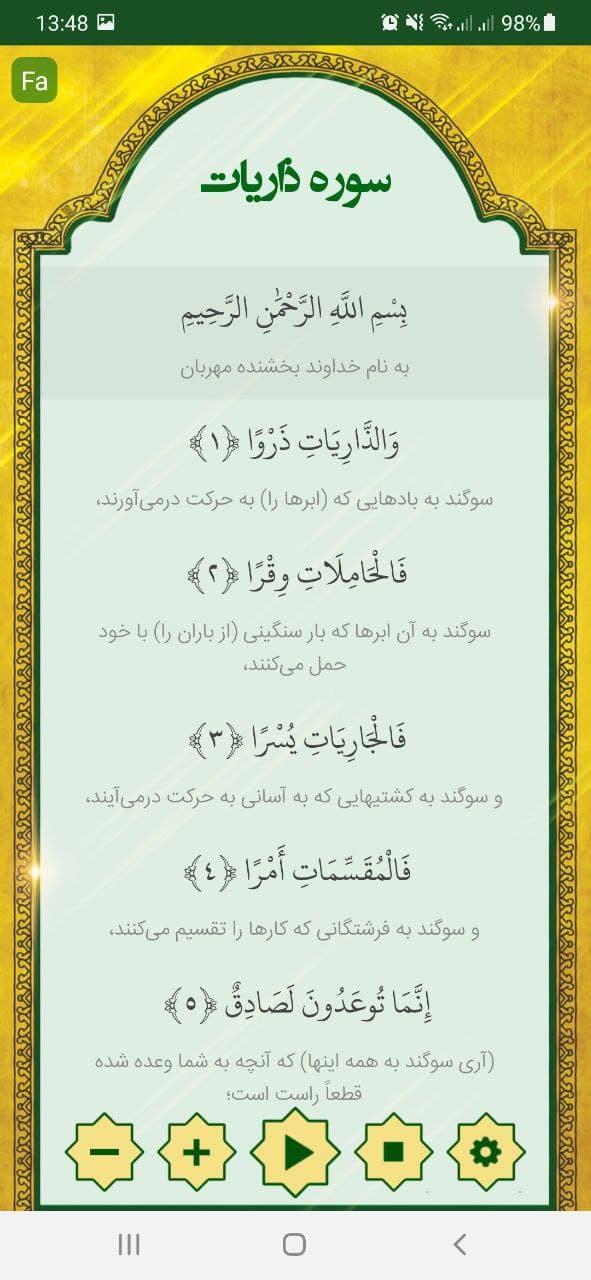 13:48 98%
Fa
سوره ذاریات
بِسْمِ اللَّهِ الرَّحْمَٰنِ الرَّحِيمِ
به نام خداوند بخشنده مهربان
وَالذَّارِيَاتِ ذَرْوًا ﴿١﴾
سوگند به بادهایی که (ابرها را) به حرکت درمی‌آورند،
فَالْحَامِلَاتِ وِقْرًا ﴿٢﴾
سوگند به آن ابرها که بار سنگینی (از باران را) با خود
حمل می‌کنند،
فَالْجَارِيَاتِ يُسْرًا ﴿٣﴾
و سوگند به کشتیهایی که به آسانی به حرکت درمی‌آیند،
فَالْمُقَسِّمَاتِ أَمْرًا ﴿٤﴾
و سوگند به فرشتگانی که کارها را تقسیم می‌کنند،
إِنَّمَا تُوعَدُونَ لَصَادِقٌ ﴿٥﴾
(آری سوگند به همه اینها) که آنچه به شما وعده شده
قطعاً راست است؛